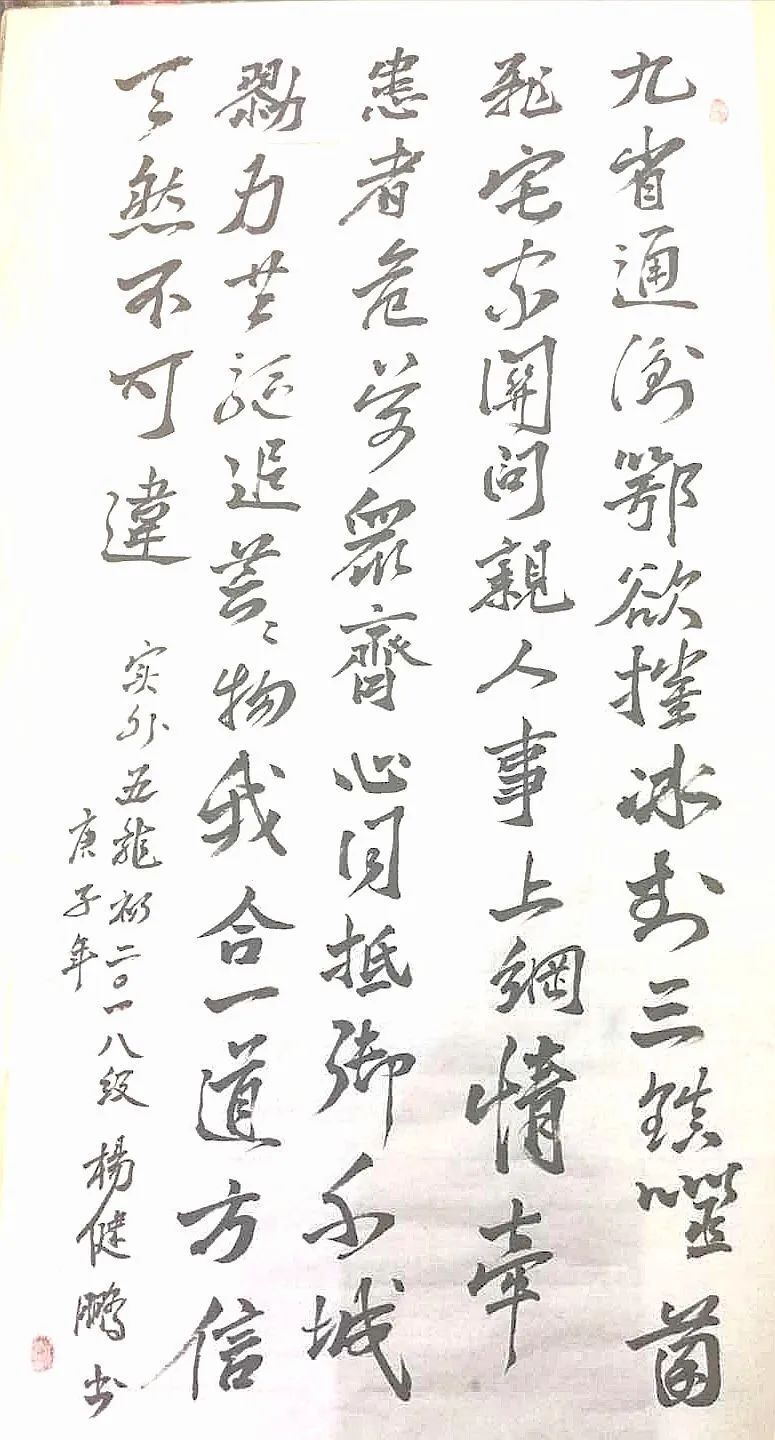 九省通衢鄂欲摧冰封三鎮噬菌
飛宅家關問親人事上網情牽
患者危萬眾齊心同抵御千城
勠力共驅追芸芸物我合一道方信
天然不可違
实外五龍初二〇一八级 楊健鵬书
庚子年